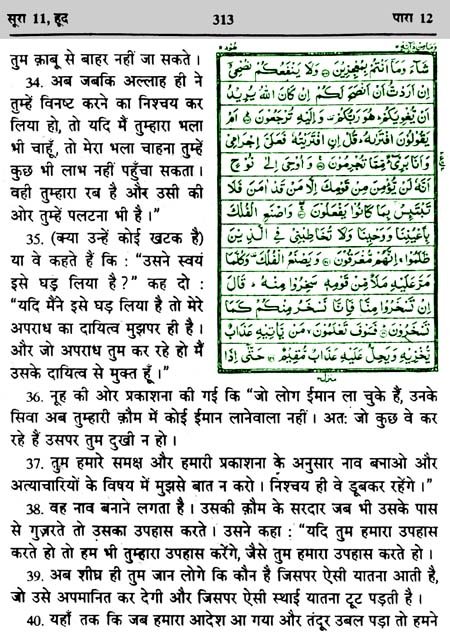 सूरा 11, हूद
313
पारा 12
तुम क़ाबू से बाहर नहीं जा सकते।
34. अब जबकि अल्लाह ही ने
तुम्हें विनष्ट करने का निश्चय कर
लिया हो, तो यदि मैं तुम्हारा भला
भी चाहूँ, तो मेरा भला चाहना तुम्हें
कुछ भी लाभ नहीं पहुँचा सकता।
वही तुम्हारा रब है और उसी की
ओर तुम्हें पलटना भी है।”
35. (क्या उन्हें कोई खटक है)
या वे कहते हैं कि : “उसने स्वयं
इसे घड़ लिया है?” कह दो :
“यदि मैंने इसे घड़ लिया है तो मेरे
अपराध का दायित्व मुझपर ही है।
और जो अपराध तुम कर रहे हो मैं
उसके दायित्व से मुक्त हूँ।”
شَآءَ وَمَآ اَنْتُمْ بِمُعْجِزِيْنَ ۞ وَلَا يَنْفَعُكُمْ نُصْحِىْٓ
اِنْ اَرَدْتُّ اَنْ اَنْصَحَ لَكُمْ اِنْ كَانَ اللّٰهُ يُرِيْدُ
اَنْ يُّغْوِيَكُمْ ؕ هُوَ رَبُّكُمْ ۫ وَاِلَيْهِ تُرْجَعُوْنَ ۞ اَمْ
يَقُوْلُوْنَ افْتَرٰىهُ ؕ قُلْ اِنِ افْتَرَيْتُهٗ فَعَلَىَّ اِجْرَامِىْ
وَاَنَا بَرِىْٓءٌ مِّمَّا تُجْرِمُوْنَ ۞ وَاُوْحِىَ اِلٰى نُوْحٍ
اَنَّهٗ لَنْ يُّؤْمِنَ مِنْ قَوْمِكَ اِلَّا مَنْ قَدْ اٰمَنَ فَلَا
تَبْتَئِسْ بِمَا كَانُوْا يَفْعَلُوْنَ ۞ وَاصْنَعِ الْفُلْكَ
بِاَعْيُنِنَا وَوَحْيِنَا وَلَا تُخَاطِبْنِىْ فِى الَّذِيْنَ
ظَلَمُوْا ۚ اِنَّهُمْ مُّغْرَقُوْنَ ۞ وَيَصْنَعُ الْفُلْكَ ۫ وَكُلَّمَا
مَرَّ عَلَيْهِ مَلَاٌ مِّنْ قَوْمِهٖ سَخِرُوْا مِنْهُ ؕ قَالَ
اِنْ تَسْخَرُوْا مِنَّا فَاِنَّا نَسْخَرُ مِنْكُمْ كَمَا
تَسْخَرُوْنَ ۞ فَسَوْفَ تَعْلَمُوْنَ ۙ مَنْ يَّاْتِيْهِ عَذَابٌ
يُّخْزِيْهِ وَيَحِلُّ عَلَيْهِ عَذَابٌ مُّقِيْمٌ ۞ حَتّٰٓى اِذَا
36. नूह की ओर प्रकाशना की गई कि “जो लोग ईमान ला चुके हैं, उनके
सिवा अब तुम्हारी क़ौम में कोई ईमान लानेवाला नहीं। अत: जो कुछ वे कर
रहे हैं उसपर तुम दुखी न हो।
37. तुम हमारे समक्ष और हमारी प्रकाशना के अनुसार नाव बनाओ और
अत्याचारियों के विषय में मुझसे बात न करो। निश्चय ही वे डूबकर रहेंगे।”
38. वह नाव बनाने लगता है। उसकी क़ौम के सरदार जब भी उसके पास
से गुज़रते तो उसका उपहास करते। उसने कहा : “यदि तुम हमारा उपहास
करते हो तो हम भी तुम्हारा उपहास करेंगे, जैसे तुम हमारा उपहास करते हो।
39. अब शीघ्र ही तुम जान लोगे कि कौन है जिसपर ऐसी यातना आती है,
जो उसे अपमानित कर देगी और जिसपर ऐसी स्थाई यातना टूट पड़ती है।
40. यहाँ तक कि जब हमारा आदेश आ गया और तंदूर उबल पड़ा तो हमने